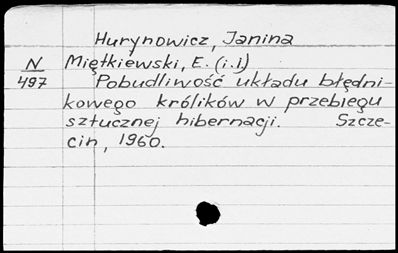 Hurynowicz, Janina
N Miętkiewski, E. (i.i)
497 Pobudliwość układu błędni-
kowego królików w przebiegu
sztucznej hibernacji. Szcze-
cin, 1960.